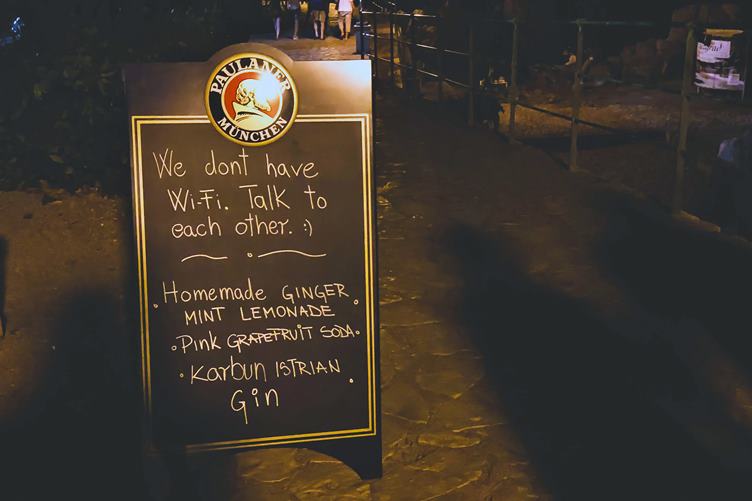 PAULANER
MÜNCHEN
We dont have
Wi-Fi. Talk to
each other. :)
Homemade GINGER
MINT LEMONADE
Pink GRAPEFRUIT SODA
Karbun ISTRIAN
Gin